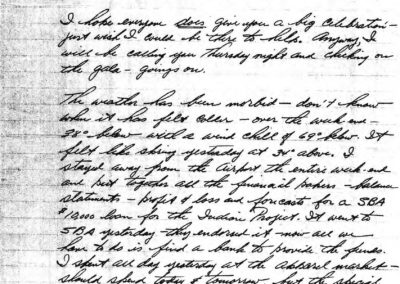 I hope everyone does give you a big celebration -
just wish I could be there to help. Anyway, I
will be calling you Thursday night and checking on
the gala - goings on.
The weather has been morbid - don't know
when it has felt colder - over the week end -
28° below - with a wind chill of 69° below. It
felt like spring yesterday at 34° above. I
stayed away from the Airport the entire week-end
and put together all the financial papers - balance
statments - profit & loss and forcasts for a SBA
loan for the Indian Project. It went to
SBA yesterday - they endorsed it - now all we
have to do is find a bank to provide the funds.
I spent all day yesterday at the Apparel market -
should spend today & tomorrow but the special